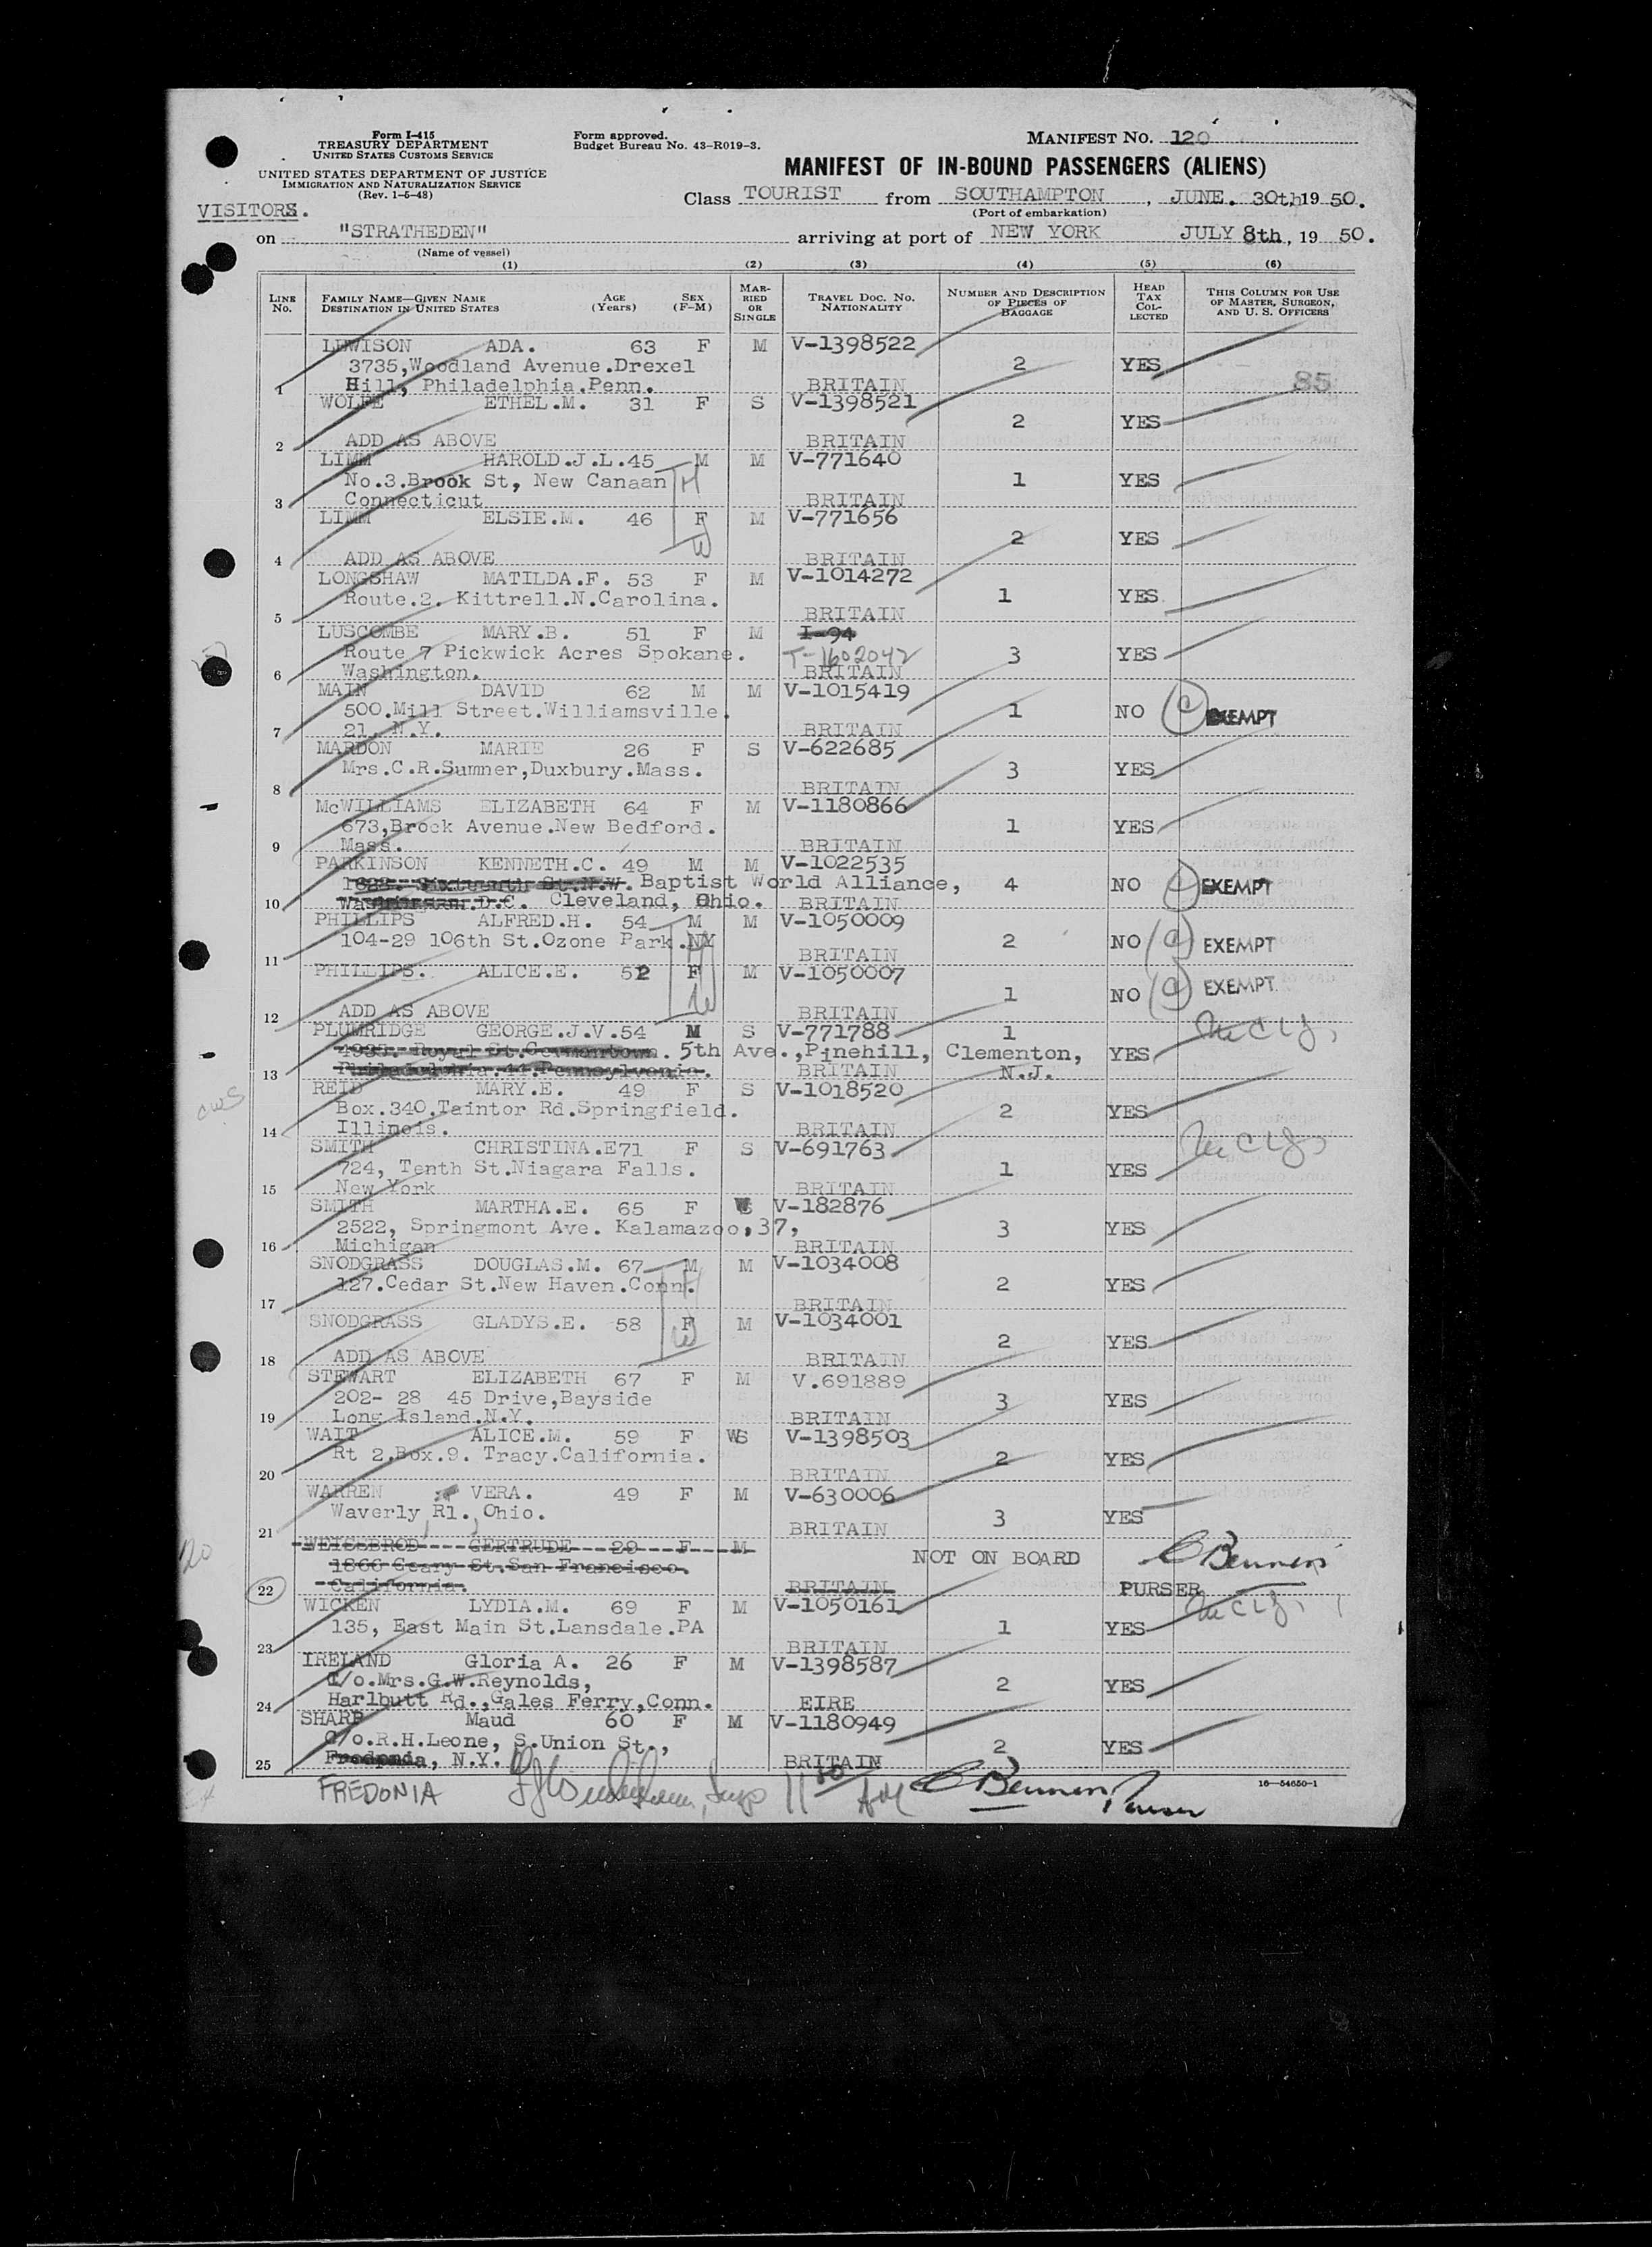 Form I-415
TREASURY DEPARTMENT
UNITED STATES CUSTOMS SERVICE
UNITED STATES DEPARTMENT OF JUSTICE
IMMIGRATION AND NATURALIZATION SERVICE
(Rev. 1-5-48)
Form approved.
Budget Bureau No. 43-R019-3.
MANIFEST No. 120
MANIFEST OF IN-BOUND PASSENGERS (ALIENS)
Class TOURIST from SOUTHAMPTON, JUNE. 30th 19 50.
(Port of embarkation)
VISITORS.
on "STRATHEDEN" arriving at port of NEW YORK JULY 8th, 19 50.
(Name of vessel)
(1) (2) (3) (4) (5) (6)
LINE No. FAMILY NAME—GIVEN NAME DESTINATION IN UNITED STATES AGE (Years) SEX (F-M) MARRIED OR SINGLE TRAVEL DOC. No. NATIONALITY NUMBER AND DESCRIPTION OF PIECES OF BAGGAGE HEAD TAX COLLECTED THIS COLUMN FOR USE OF MASTER, SURGEON, AND U. S. OFFICERS
LEWISON ADA. 63 F M V-1398522
3735,Woodland Avenue.Drexel 2 YES
1 Hill, Philadelphia.Penn. BRITAIN 85
WOLFE ETHEL.M. 31 F S V-1398521
2 YES
2 ADD AS ABOVE BRITAIN
LIMM HAROLD.J.L. 45 M M V-771640
No.3.Brook St, New Canaan H 1 YES
3 Connecticut BRITAIN
LIMM ELSIE.M. 46 F M V-771656
W 2 YES
4 ADD AS ABOVE BRITAIN
LONGSHAW MATILDA.F. 53 F M V-1014272
Route.2. Kittrell.N.Carolina. 1 YES.
5 BRITAIN
LUSCOMBE MARY.B. 51 F M I-94
Route 7 Pickwick Acres Spokane. T-1602042 3 YES
6 Washington. BRITAIN
MAIN DAVID 62 M M V-1015419
500.Mill Street.Williamsville. 1 NO (C) EXEMPT
7 21. N.Y. BRITAIN
MARDON MARIE 26 F S V-622685
Mrs.C.R.Sumner,Duxbury.Mass. 3 YES
8 BRITAIN
McWILLIAMS ELIZABETH 64 F M V-1180866
673,Brock Avenue.New Bedford. 1 YES
9 Mass. BRITAIN
PARKINSON KENNETH.C. 49 M M V-1022535
1628. Sixteenth St.N.W. Baptist World Alliance, 4 NO (C) EXEMPT
10 Washington.D.C. Cleveland, Ohio. BRITAIN
PHILLIPS ALFRED.H. 54 M M V-1050009
104-29 106th St.Ozone Park.NY H 2 NO (C) EXEMPT
11 BRITAIN
PHILLIPS. ALICE.E. 52 F M V-1050007
W 1 NO (C) EXEMPT
12 ADD AS ABOVE BRITAIN
PLUMRIDGE GEORGE.J.V. 54 M S V-771788 1
4935. Royal St.Germantown. 5th Ave.,Pinehill, Clementon, YES
13 Philadelphia.44.Pennsylvania. BRITAIN N.J.
REID MARY.E. 49 F S V-1018520
Box.340.Taintor Rd.Springfield. 2 YES
14 Illinois. BRITAIN
SMITH CHRISTINA.E 71 F S V-691763
724, Tenth St.Niagara Falls. 1 YES
15 New York BRITAIN
SMITH MARTHA.E. 65 F V-182876
2522, Springmont Ave. Kalamazoo,37, 3 YES
16 Michigan BRITAIN
SNODGRASS DOUGLAS.M. 67 M M V-1034008
127.Cedar St.New Haven.Conn. H 2 YES
17 BRITAIN
SNODGRASS GLADYS.E. 58 F M V-1034001
W 2 YES
18 ADD AS ABOVE BRITAIN
STEWART ELIZABETH 67 F M V.691889
202- 28 45 Drive,Bayside 3 YES
19 Long Island.N.Y. BRITAIN
WAIT ALICE.M. 59 F WS V-1398503
Rt 2.Box.9. Tracy.California. 2 YES
20 BRITAIN
WARREN VERA. 49 F M V-630006
Waverly, R1., Ohio. 3 YES
21 BRITAIN
WEISSBROD GERTRUDE 29 F M NOT ON BOARD
1866 Geary St.San Francisco.
22 California. BRITAIN PURSER
WICKEN LYDIA.M. 69 F M V-1050161
135, East Main St.Lansdale.PA 1 YES
23 BRITAIN
IRELAND Gloria A. 26 F M V-1398587
C/o.Mrs.G.W.Reynolds, 2 YES
24 Harlbutt Rd.,Gales Ferry,Conn. EIRE
SHARP Maud 60 F M V-1180949
C/o.R.H.Leone, S.Union St., 2 YES
25 Fredonia, N.Y. BRITAIN
FREDONIA Purser
16—54650-1